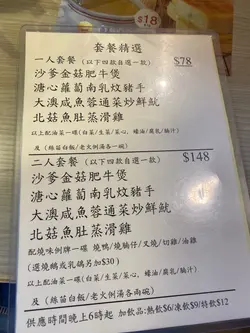 $18
套餐精選
一人套餐 (以下四款自選一款) $78
沙爹金菇肥牛煲
溏心蘿蔔南乳炆豬手
大澳咸魚蓉通菜炒鮮魷
北菇魚肚蒸滑雞
以上配油菜一碟(白菜/生菜/菜心, 蠔油/腐乳/腩汁)
及 (絲苗白飯/老火例湯各一碗)
二人套餐 (以下四款自選一款) $148
沙爹金菇肥牛煲
溏心蘿蔔南乳炆豬手
大澳咸魚蓉通菜炒鮮魷
北菇魚肚蒸滑雞
配燒味例牌一碟 燒鴨/燒腩仔/叉燒/切雞/油雞
(選燒鵝或乳鴿另加$30)
以上配油菜一碟(白菜/生菜/菜心, 蠔油/腐乳/腩汁)
及 (絲苗白飯/老火例湯各兩碗)
供應時間晚上6時起 加飲品:熱飲$6/凍飲$9/特飲$12